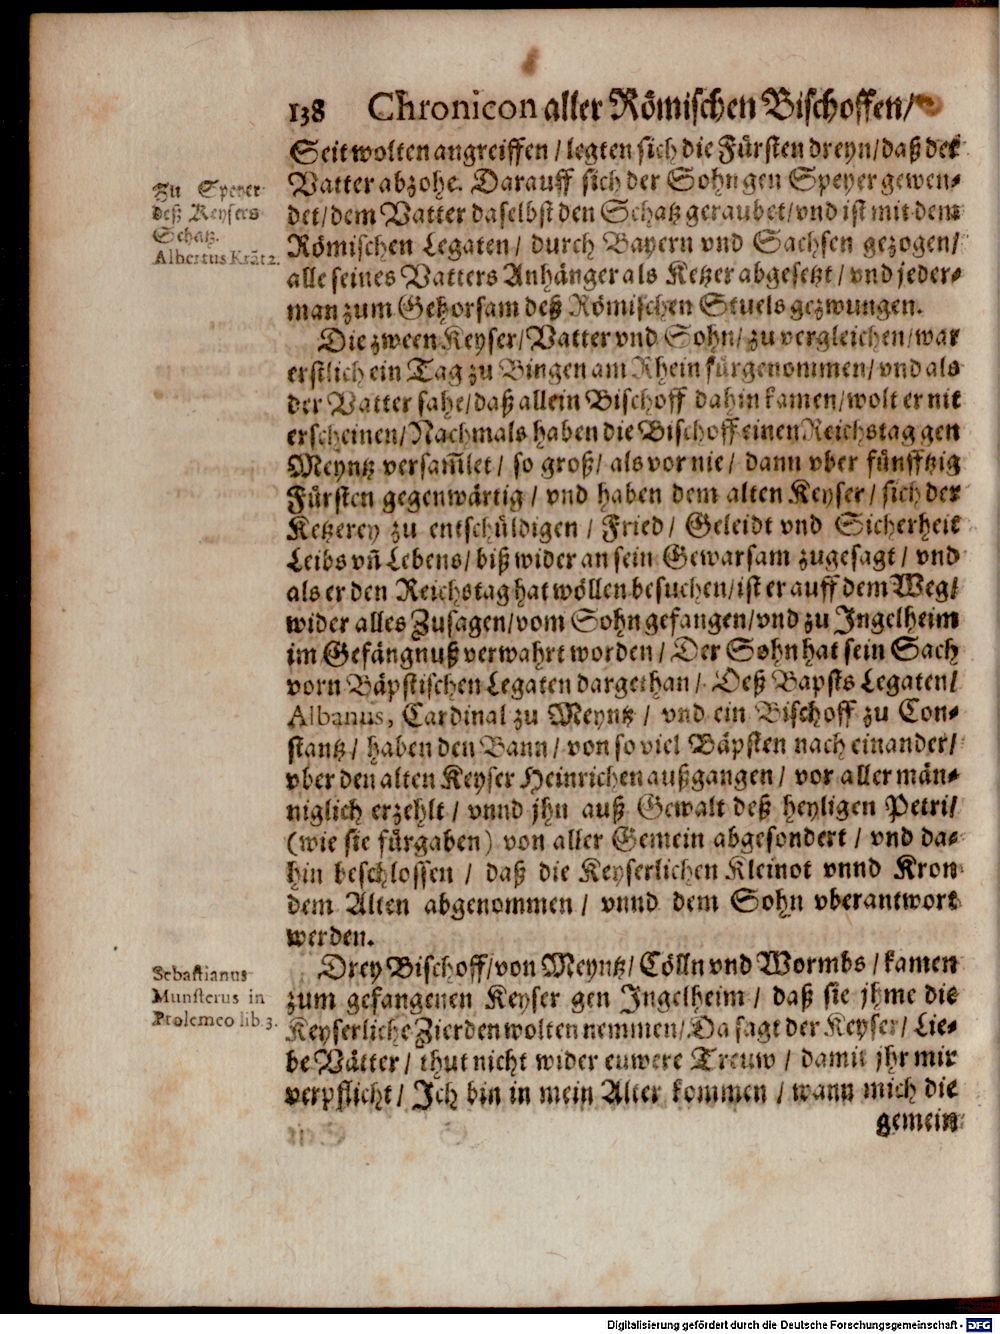 138 Chronicon aller Römischen Bischoffen/
Seit wolten angreiffen / legten sich die Fürsten dreyn/ daß der
Vatter abzohe. Darauff sich der Sohn gen Speyer gewen-
det/ dem Vatter daselbst den Schatz geraubet/ vnd ist mit dem
Römischen Legaten / durch Bayern vnd Sachsen gezogen/
alle seines Vatters Anhänger als Ketzer abgesetzt / vnd jeder-
man zum Gehorsam deß Römischen Stuels gezwungen.
Zu Speyer
deß Keysers
Schatz.
Albertus Krātz.
Die zween Keyser/ Vatter vnd Sohn/ zu vergleichen/ war
erstlich ein Tag zu Bingen am Rhein fürgenommen/ vnd als
der Vatter sahe/ daß allein Bischoff dahin kamen/ wolt er nit
erscheinen/ Nachmals haben die Bischoff einen Reichstag gen
Meyntz versam̄let / so groß/ als vor nie / dann vber fünfftzig
Fürsten gegenwärtig / vnd haben dem alten Keyser / sich der
Ketzerey zu entschüldigen / Fried / Geleidt vnd Sicherheit
Leibs vn̄ Lebens/ biß wider an sein Gewarsam zugesagt / vnd
als er den Reichstag hat wöllen besuchen/ ist er auff dem Weg/
wider alles Zusagen/ vom Sohn gefangen/ vnd zu Ingelheim
im Gefängnuß verwahrt worden / Der Sohn hat sein Sach
vorn Bäpstischen Legaten dargethan / Deß Bapsts Legaten/
Albanus, Cardinal zu Meyntz / vnd ein Bischoff zu Con-
stantz / haben den Bann / von so viel Bäpsten nach einander/
vber den alten Keyser Heinrichen außgangen / vor aller män-
niglich erzehlt / vnnd jhn auß Gewalt deß heyligen Petri/
(wie sie fürgaben) von aller Gemein abgesondert / vnd da-
hin beschlossen / daß die Keyserlichen Kleinot vnnd Kron
dem Alten abgenommen / vnnd dem Sohn vberantwort
werden.
Drey Bischoff/ von Meyntz/ Cölln vnd Wormbs / kamen
zum gefangenen Keyser gen Ingelheim / daß sie jhme die
Keyserliche Zierden wolten nemmen/ Da sagt der Keyser/ Lie-
be Vätter / thut nicht wider euwere Treuw / damit jhr mir
verpflicht / Ich bin in mein Alter kommen / wann mich die
Sebastianus
Munsterus in
Ptolemeo lib. 3.
gemein
Digitalisierung gefördert durch die Deutsche Forschungsgemeinschaft - DFG